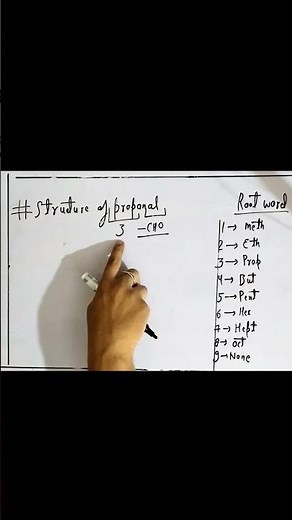 # Structure of propanal
3 -CHO
Root word
1 → Meth
2 → Eth
3 → Prop
4 → But
5 → Pent
6 → Hex
7 → Hept
8 → oct
9 → None